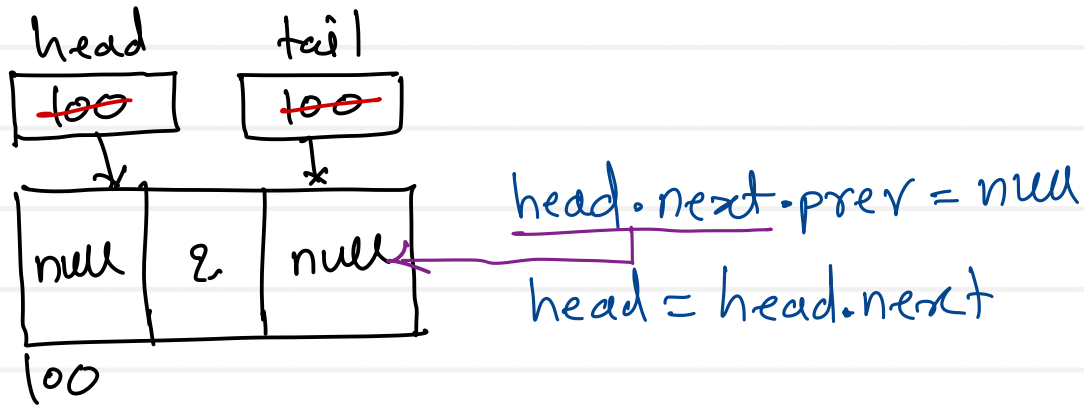 head tail
100 100
null 2 null
100
head.next.prev = null
head = head.next